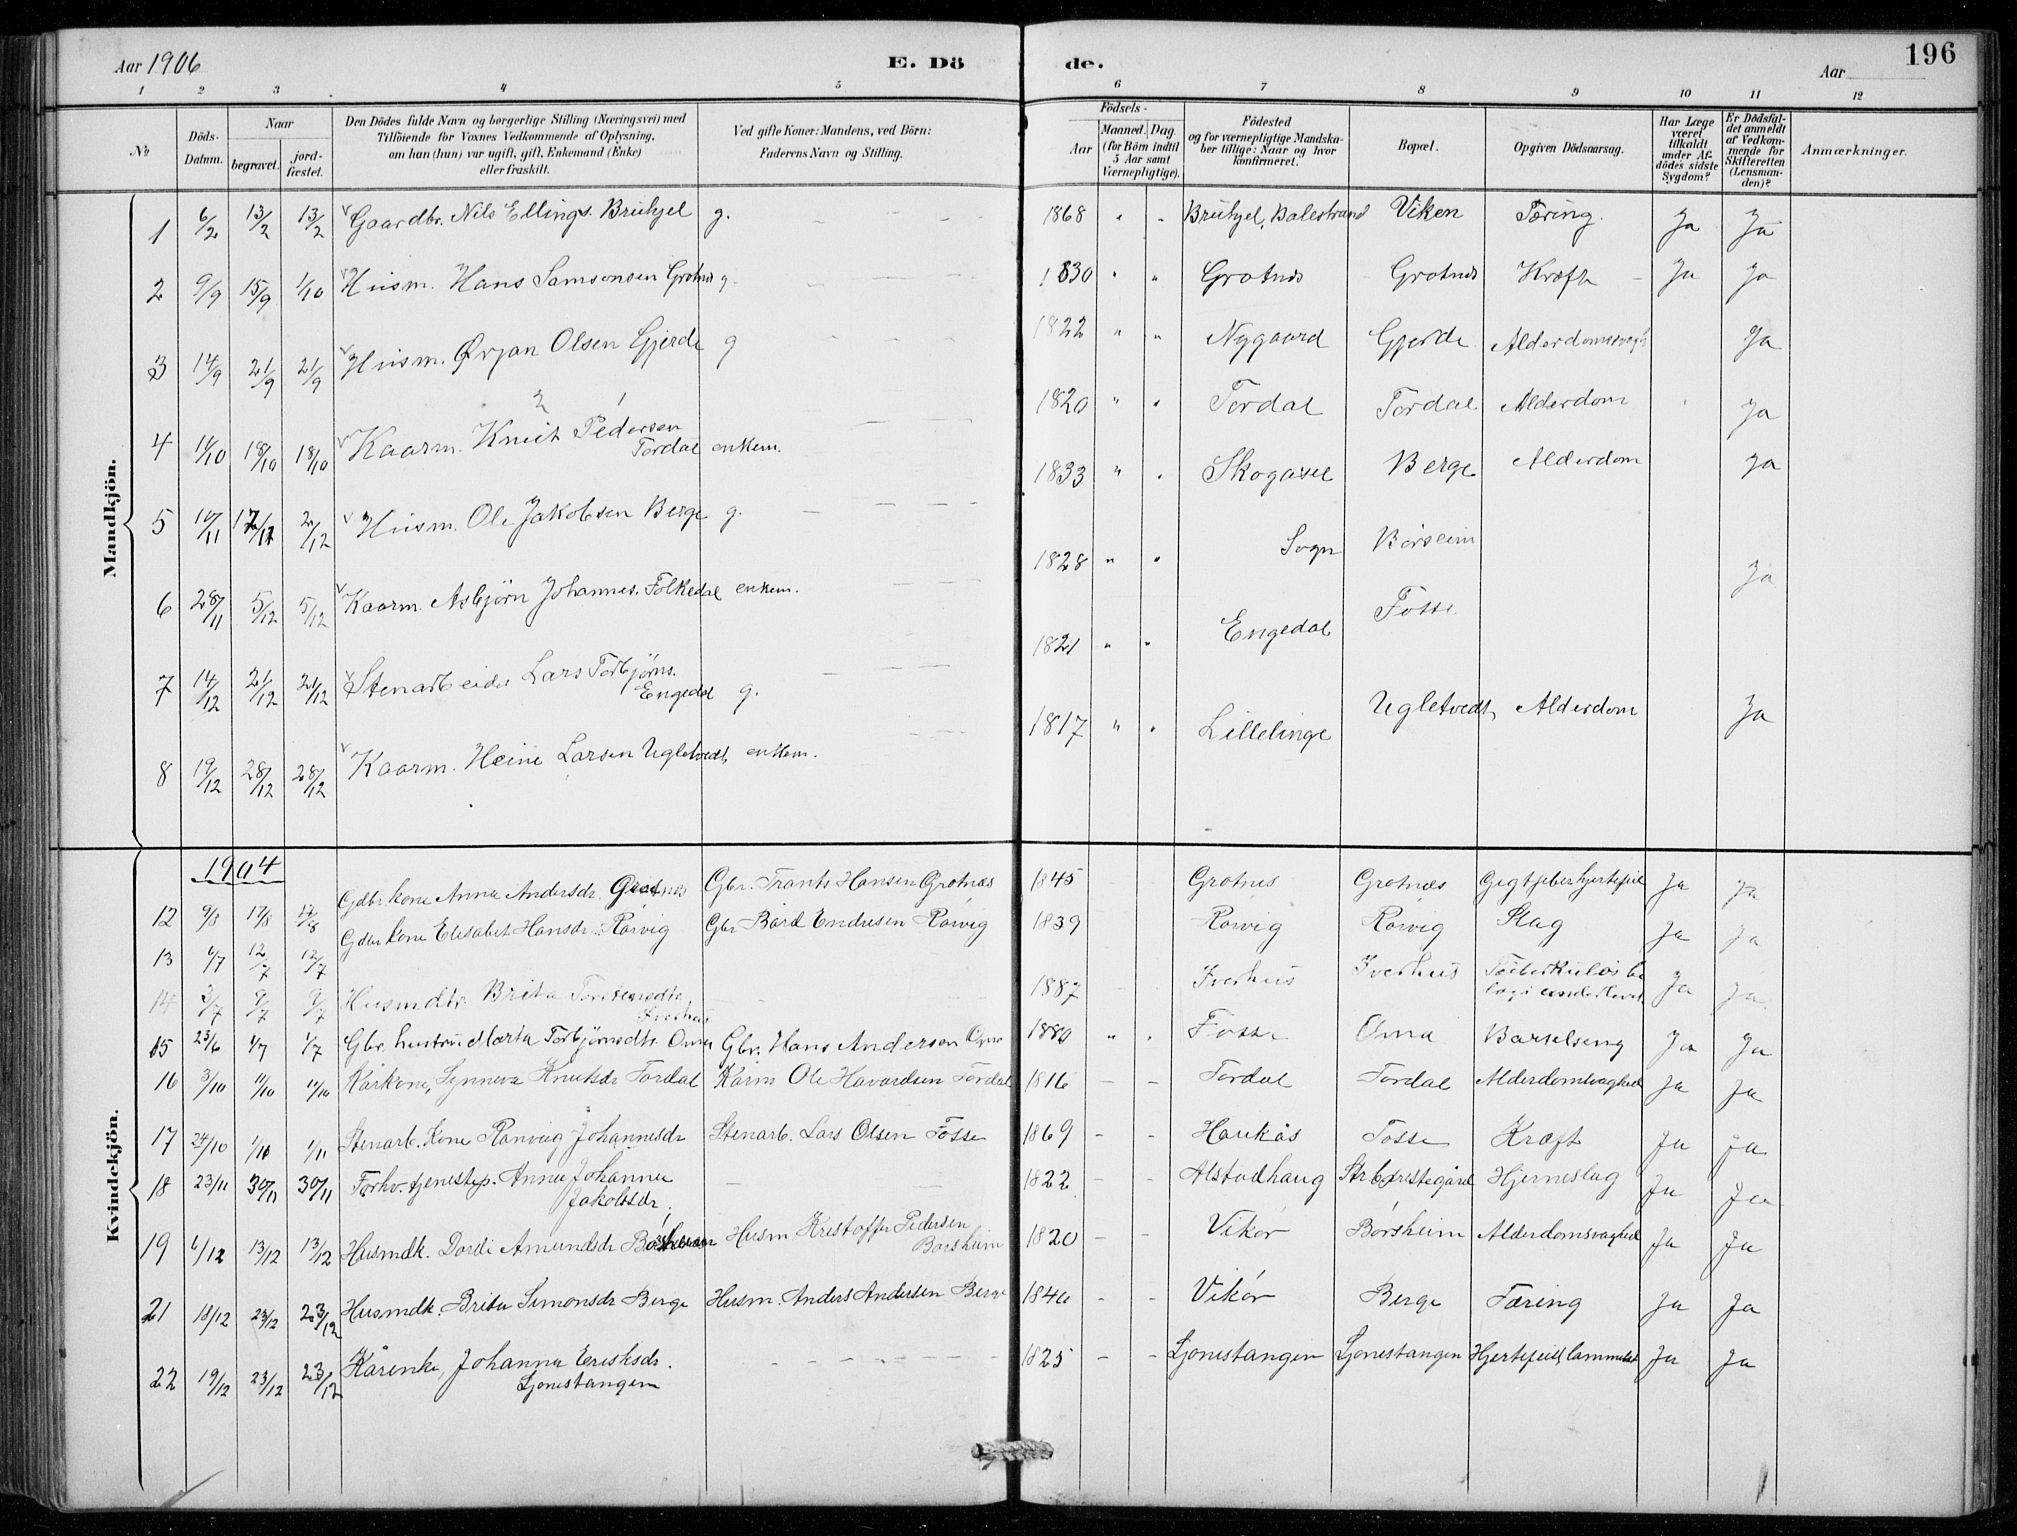 Aar 1906
E. Dö
de.
Aar
196
1 2 3 4 5 6 7 8 9 10 11 12
No
Döds-Datum.
Naar
begravet.
jord-fæstet.
Den Dödes fulde Navn og borgerlige Stilling (Næringsvei) med
Tilföiende for Voxnes Vedkommende af Oplysning,
om han (hun) var ugift, gift, Enkemand (Enke)
eller fraskilt.
Ved gifte Koner: Mandens, ved Börn:
Faderens Navn og Stilling.
Födsels-
Aar
Maaned. Dag.
(for Börn indtil
5 Aar samt
Værnepligtige).
Födested
og for værnepligtige Mandska-
ber tillige: Naar og hvor
konfirmeret.
Bopæl.
Opgiven Dödsaarsag.
Har Læge
været
tilkaldt
under Af-
dödes sidste
Sygdom?
Er Dödsfal-
det anmeldt
af Vedkom-
mende for
Skifteretten
(Lensman-
den)?
Anmærkninger.
Mandkjön.
1 6/2 13/2 13/2 Gaardbr. Nils Ellings. Bruhjel g. 1868 " " Bruhjel, Balestrand Viken Tæring. Ja Ja
2 9/9 15/9 1/10 Husm. Hans Samsonsen Grotnes g. 1830 " " Grotnes Grotnes Kræft Ja Ja
3 14/9 21/9 21/9 Husm. Ørjan Olsen Gjerde g 1822 " " Nygaard Gjerde Ja
4 11/10 18/10 18/10 Kaarm. Knut Pedersen
Tordal enkem. 1820 " " Tordal Tordal Alderdom Ja
5 10/11 17/11 2/12 Husm. Ole Jakobsen Berge g. 1833 " " Skogasel Berge Alderdom Ja
6 28/11 5/12 5/12 Kaarm. Asbjörn Johannes. Folkedal enkem. 1828 " " Sogn Börseim Ja
7 14/12 21/12 21/12 Stenarbeider Lars Torbjørns.
Engedal g. 1821 " " Engedal Fosse
8 19/12 28/12 28/12 Kaarm. Heine Larsen Ugletvedt, enkem. 1817 " " Lillelinge Ugletvedt, Alderdom Ja
Kvindekjön.
1904
12 9/8 17/8 17/8 Gdbr kone Anna Andersdr. Grotnes Gbr. Trants Hansen Grotnæs 1845 Grotnes Grotnæs Gigtfeber hjertefeil Ja Ja
13 6/7 12/7 12/7 Gdbr kone Elisabet Hansdr. Rørvig Gbr Bård Endresen Rørvig 1839 Rørvig Rørvig Slag Ja Ja
14 3/7 9/7 9/7 Husmdtr. Brita Torstensdtr.
Iverhus 1887 Iverhus Iverhus Ja Ja
15 23/6 1/7 1/7 Gbr. hustru Marta Torbjørnsdtr. Oma Gbr. Hans Andersen Oma 1880 " " Fosse Oma Barselseng Ja Ja
16 3/10 11/10 11/10 Kårkone, Synneva Knutsdr Tordal Kårm Ole Havardsen Tordal 1816 - - Tordal Tordal Alderdomsvaghed Ja Ja
17 24/10 1/11 1/11 Stenarb. kone Ranveig Johannesdr Stenarb. Lars Olsen Fosse 1869 - - Haukås Fosse Kræft Ja Ja
18 23/11 30/11 30/11 Forhv. tjenestep. Anna Johanna
Jakobsdr. 1822 Alstadhaug Hjerneslag Ja Ja
19 6/12 13/12 13/12 Husmdk. Dordi Amundsdr Børsheim Husm Kristoffer Pedersen
Børsheim 1820 - - Vikør Børsheim Alderdomsvaghed Ja Ja
21 18/12 23/12 23/12 Husmdk. Brita Simonsdr Berge Husm. Anders Andersen Berge 1840 - - Vikør Berge Tæring Ja Ja
22 19/12 23/12 23/12 Kårenke, Johanna Eriksdr.
Ljonestangen 1825 - - Ljonestangen Ljonestangen Hjertefeil, lammelse Ja Ja